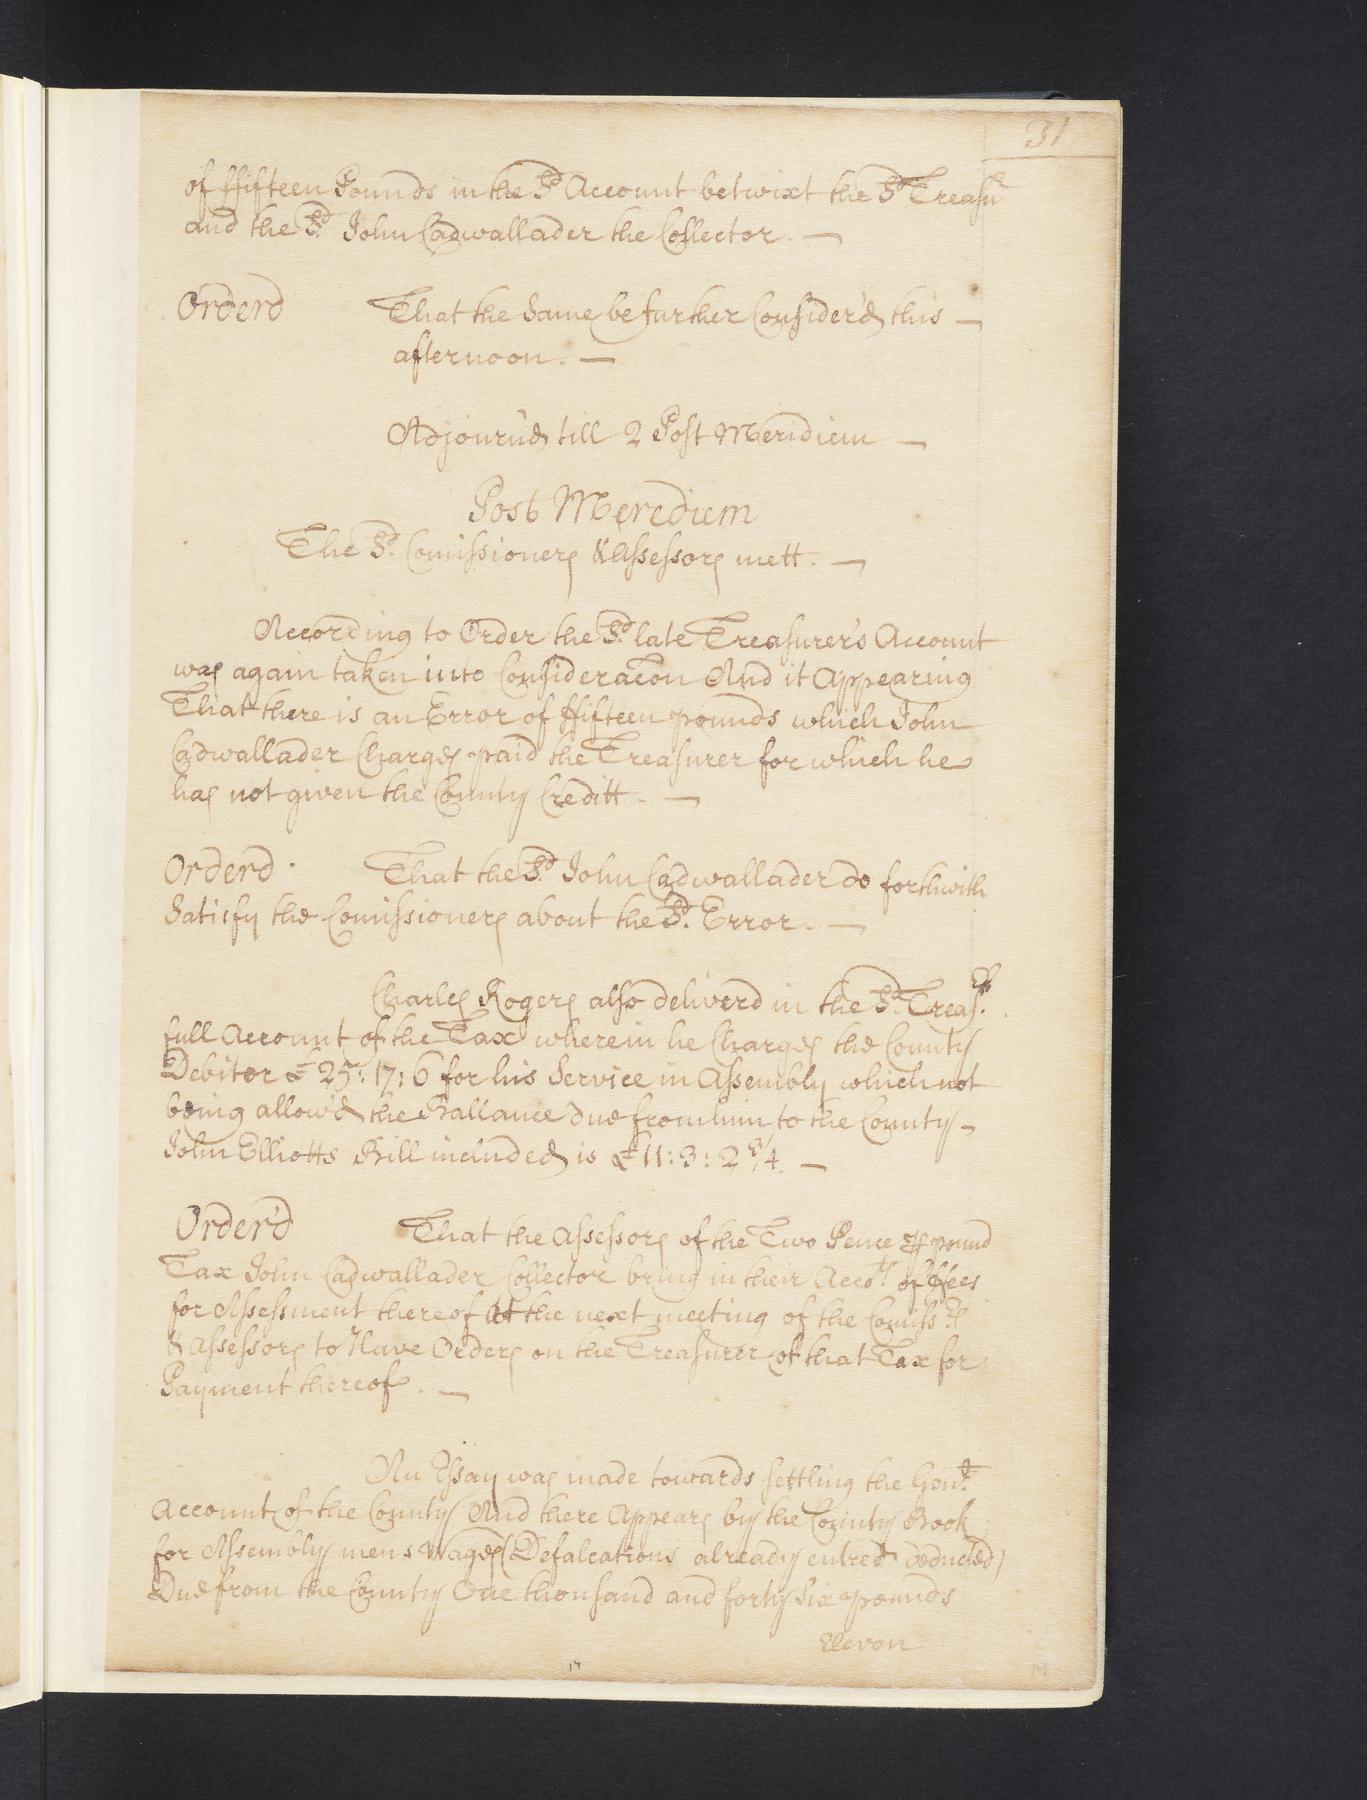 31
of ffifteen Pounds in the Sd Account betwixt the Sd Treasur
and the Sd John Cadwallader the Collector. —
Orderd That the Same be further Consider'd this —
afternoon. —
Adjourn'd till 2 Post Meridiem —
Post Merediem
The Sd Comissioners & Assessors mett. —
According to Order the Sd late Treasurer's Account
was again taken into Consideracon And it Appearing
That there is an Error of ffifteen pounds which John
Cadwallader Charges paid the Treasurer for which he
has not given the County Creditt. —
Orderd. That the Sd John Cadwallader do forthwith
Satisfy the Comissioners about the Sd Error. —
Charles Rogers also deliverd in the Sd Treasrs.
full Account of the Tax wherein he Charges the County
Debitor £25: 17: 6 for his Service in Assembly which not
being allow'd the Ballance due from him to the County —
John Elliotts Bill included is £11: 3: 2 3/4. —
Order'd That the Assessors of the Two Pence ⅌ pound
Tax John Cadwallader Collector bring in their Accots of ffees
for Assessment thereof At the next meeting of the Comissrs
& Assessors to Have Orders on the Treasurer of that Tax for
Payment thereof. —
An Essay was made towards settling the Genll
Account of the County And there Appears by the County Book
for Assembly mens Wages (Defalcations already entred deducted)
Due from the County One thousand and forty six pounds
Eleven
17